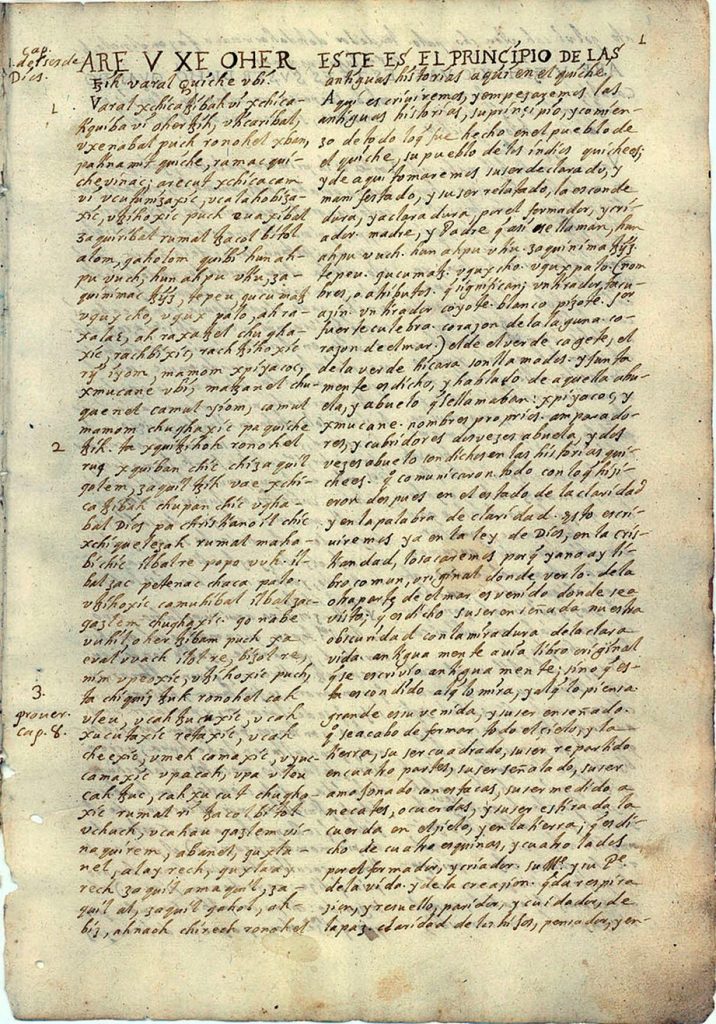 Cap.
1. del ser de
Dios.
ARE V XE OHER
ꜩih varal quiche vbi.
1
Varal xchicaꜩibah vi xchica-
tiquiba vi oher ꜩih, vticaribal,
vxenabal puch ronohel xban,
pa tinamit quiche, ramac qui-
che vinac; arecut xchicacam
vi vcutunizaxic, vcalahobiza-
xic, vꜩihoxic puch euaxibal
zaquiribal rumal ꜩacol bitol
alom, qaholom quibi hun ah-
pu vuch, hun ahpu vtiu, za-
quinimac ꜩijz, tepeu, qucumatz
vquxcho, vqux palo, ah ra-
xalac, ah raxaꜩel chugha-
xic, rachbixic, rachꜩihoxic
rij iyom, mamom xpiyacoc,
xmucane vbi, maꜩanel chu-
quenel camul iyom, camul
mamom chughaxic pa quiche
2
ꜩih. ta xquiꜩihoh ronohel
ruq xquiban chic chi zaquil
qolem, zaquil ꜩih vae xchi-
caꜩibah chupan chic vgha-
bal Dios pa christianoil chic
xchiquelezah rumal maha-
bi chic ilbal re popo vuh. il-
bal zac petenac chaca palo.
vꜩihoxic camuhibal ilbal zac-
qazlem chughaxic. qo nabe
vuhil, oher ꜩibam puch xa
eval vvach ilol re, bizol re,
nim vpeoxic, vꜩihoxic puch,
3.
prouer.
Cap. 8.
ta chiquiz ꜩuk ronohel cah
vleu, vcah ꜩucuxic, v cah
xucutaxic retaxic, v cah
cheexic, vmeh camaxic, v yuc
camaxic vpa cah, vpa vleu
cah ꜩuc, cah xucut chugho-
xic rumal ri ꜩacol bitol
vchuch, vcahau qazlem vi-
naquirem, abanel, quxla-
nel, alay rech, quxlaay
rech zaquil amaquil, za-
quil al, zaquil qahol, ah-
biz, ahnaoh chirech ronohel
1
ESTE ES EL PRINCIPIO DE LAS
antiguas historias aqui en el quiche,
Aqui escriuiremos, y empezaremos las
antiguas historias, su principio, y comien-
zo de todo lo q̃ fue hecho en el pueblo de
el quiche, su pueblo de los indios quichees;
y de aqui tomaremos su ser declarado, y
manifestado, y su ser relatado, la esconde
dura, y aclaradura, por el formador, y cri-
ador. madre, y Padre q̃ asi se llaman, hun
ahpu vuch. hun ahpu vtiu. zaquinima ꜩijz
tepeu. qucumatz. vquxcho. vquxpalo. (nom
bres, o atributos. q̃ significan; vn tirador, tacu-
azin. vn tirador coyote. blanco pizote. for
fuerte culebra. corazon de la laguna. co-
razon de el mar.) el de el verde cagete, el
de la verde hicara son llamados. y junta
mente es dicho, y hablado de aquella abu-
ela, y abuelo q̃ se llamaban: xpiyacoc, y
xmucane. nombres proprios. amparado-
res, y cubridores dos vezes abuela, y dos
vezes abuelo son dichos en las historias qui-
chees. q̃ comunicaron todo con lo q̃ hizi-
eron despues en el estado de la claridad
y en la palabra de claridad. Esto escri-
uiremos ya en la ley de Dios, en la cris
tiandad, lo sacaremos por q̃ ya no ay li-
bro comun, original donde verlo. de la
otra parte de el mar es venido donde se a
visto; y es dicho su ser enseñada nuestra
obscuridad con la miradura de la clara
vida. antiguamente auia libro original
q̃ se escriuio antiguamente; sino q̃ es-
ta escondido al q̃ lo mira, y al q̃ lo piensa
grande es su venida, y su ser enseñado.
q̃ se acabo de formar todo el cielo, y la
tierra, su ser cuadrado, su ser repartido
en cuatro partes, su ser señalado, su ser
amojonado con estacas, su ser medido a
mecates, o cuerdas, y su ser estirada la
cuerda en el cielo, y en la tierra; q̃ es di
cho de cuatro esquinas, y cuatro lados
por el formador, y criador. su Me. y su Pe.
de la vida. y de la creazion. q̃ da respira
zion, y resuello, paridor, y cuidador, de
la paz. claridad de los hijos, pensador, y en-